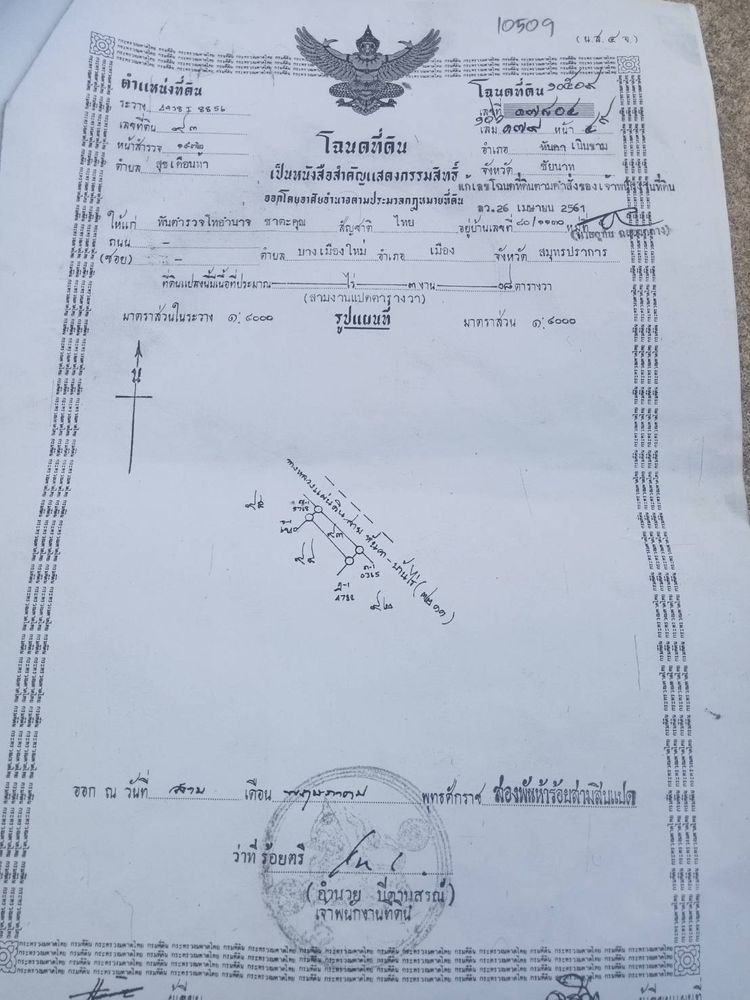 10509
(น.ส. ๔ จ.)
ตำแหน่งที่ดิน
โฉนดที่ดิน ๑๐๕๐๙
ระวาง 4938 I 8856
เลขที่ ๑๗๘๐๔
เลขที่ดิน ๙๓
เล่ม หน้า
หน้าสำรวจ
โฉนดที่ดิน
อำเภอ หันคา เนินขาม
ตำบล สุขเดือนห้า
เป็นหนังสือสำคัญแสดงกรรมสิทธิ์
จังหวัด ชัยนาท
ออกโดยอาศัยอำนาจตามประมวลกฎหมายที่ดิน
แก้เลขโฉนดที่ดินตามคำสั่งของเจ้าพนักงานที่ดิน
ลว.26 เมษายน 2561
ให้แก่ พันตำรวจโทอำนาจ ชาตะคุณ สัญชาติ ไทย อยู่บ้านเลขที่ ๘๐/๑๑๓๐ หมู่ที่
ถนน –
(ซอย) – ตำบล บางเมืองใหม่ อำเภอ เมือง จังหวัด สมุทรปราการ
ที่ดินแปลงนี้มีเนื้อที่ประมาณ ไร่ ๓ งาน ๐๘ ตารางวา
(สามงานแปดตารางวา)
มาตราส่วนในระวาง ๑:๔๐๐๐
รูปแผนที่
มาตราส่วน ๑:๔๐๐๐
น
ทางหลวงแผ่นดิน สาย หันคา - บ้านไร่
๙๓
0365
4788
ออก ณ วันที่ สาม เดือน พฤษภาคม พุทธศักราช สองพันห้าร้อยสามสิบแปด
ว่าที่ ร้อยตรี
(อำนวย ปี่ตานสรณ์)
เจ้าพนักงานที่ดิน